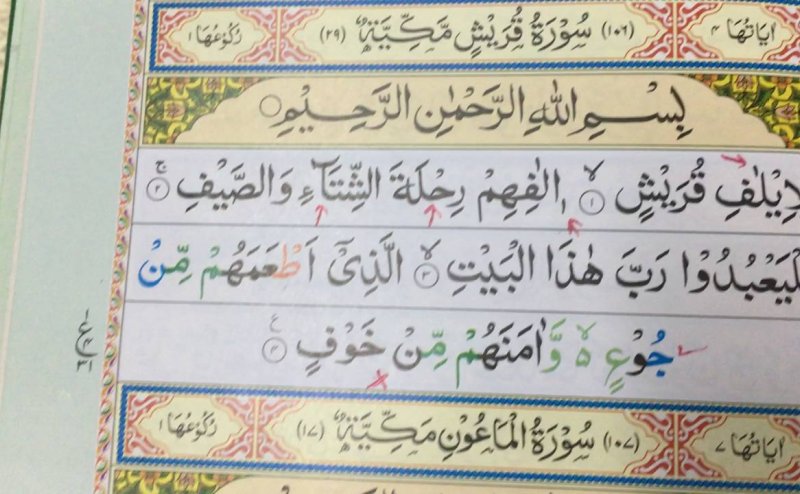 اٰيَاتُهَا ٤ (١٠٦) سُوْرَةُ قُرَيْشٍ مَّكِّيَّةٌ (٢٩) رُكُوْعُهَا ١
بِسْمِ اللّٰهِ الرَّحْمٰنِ الرَّحِيْمِ
لِاِيْلٰفِ قُرَيْشٍ ۙ ١ اٖلٰفِهِمْ رِحْلَةَ الشِّتَآءِ وَالصَّيْفِ ۚ ٢
لْيَعْبُدُوْا رَبَّ هٰذَا الْبَيْتِ ۙ ٣ الَّذِيْٓ اَطْعَمَهُمْ مِّنْ
جُوْعٍ ۙ۬ وَّاٰمَنَهُمْ مِّنْ خَوْفٍ ٤ ع
اٰيَاتُهَا ٧ (١٠٧) سُوْرَةُ الْمَاعُوْنِ مَكِّيَّةٌ (١٧) رُكُوْعُهَا ١